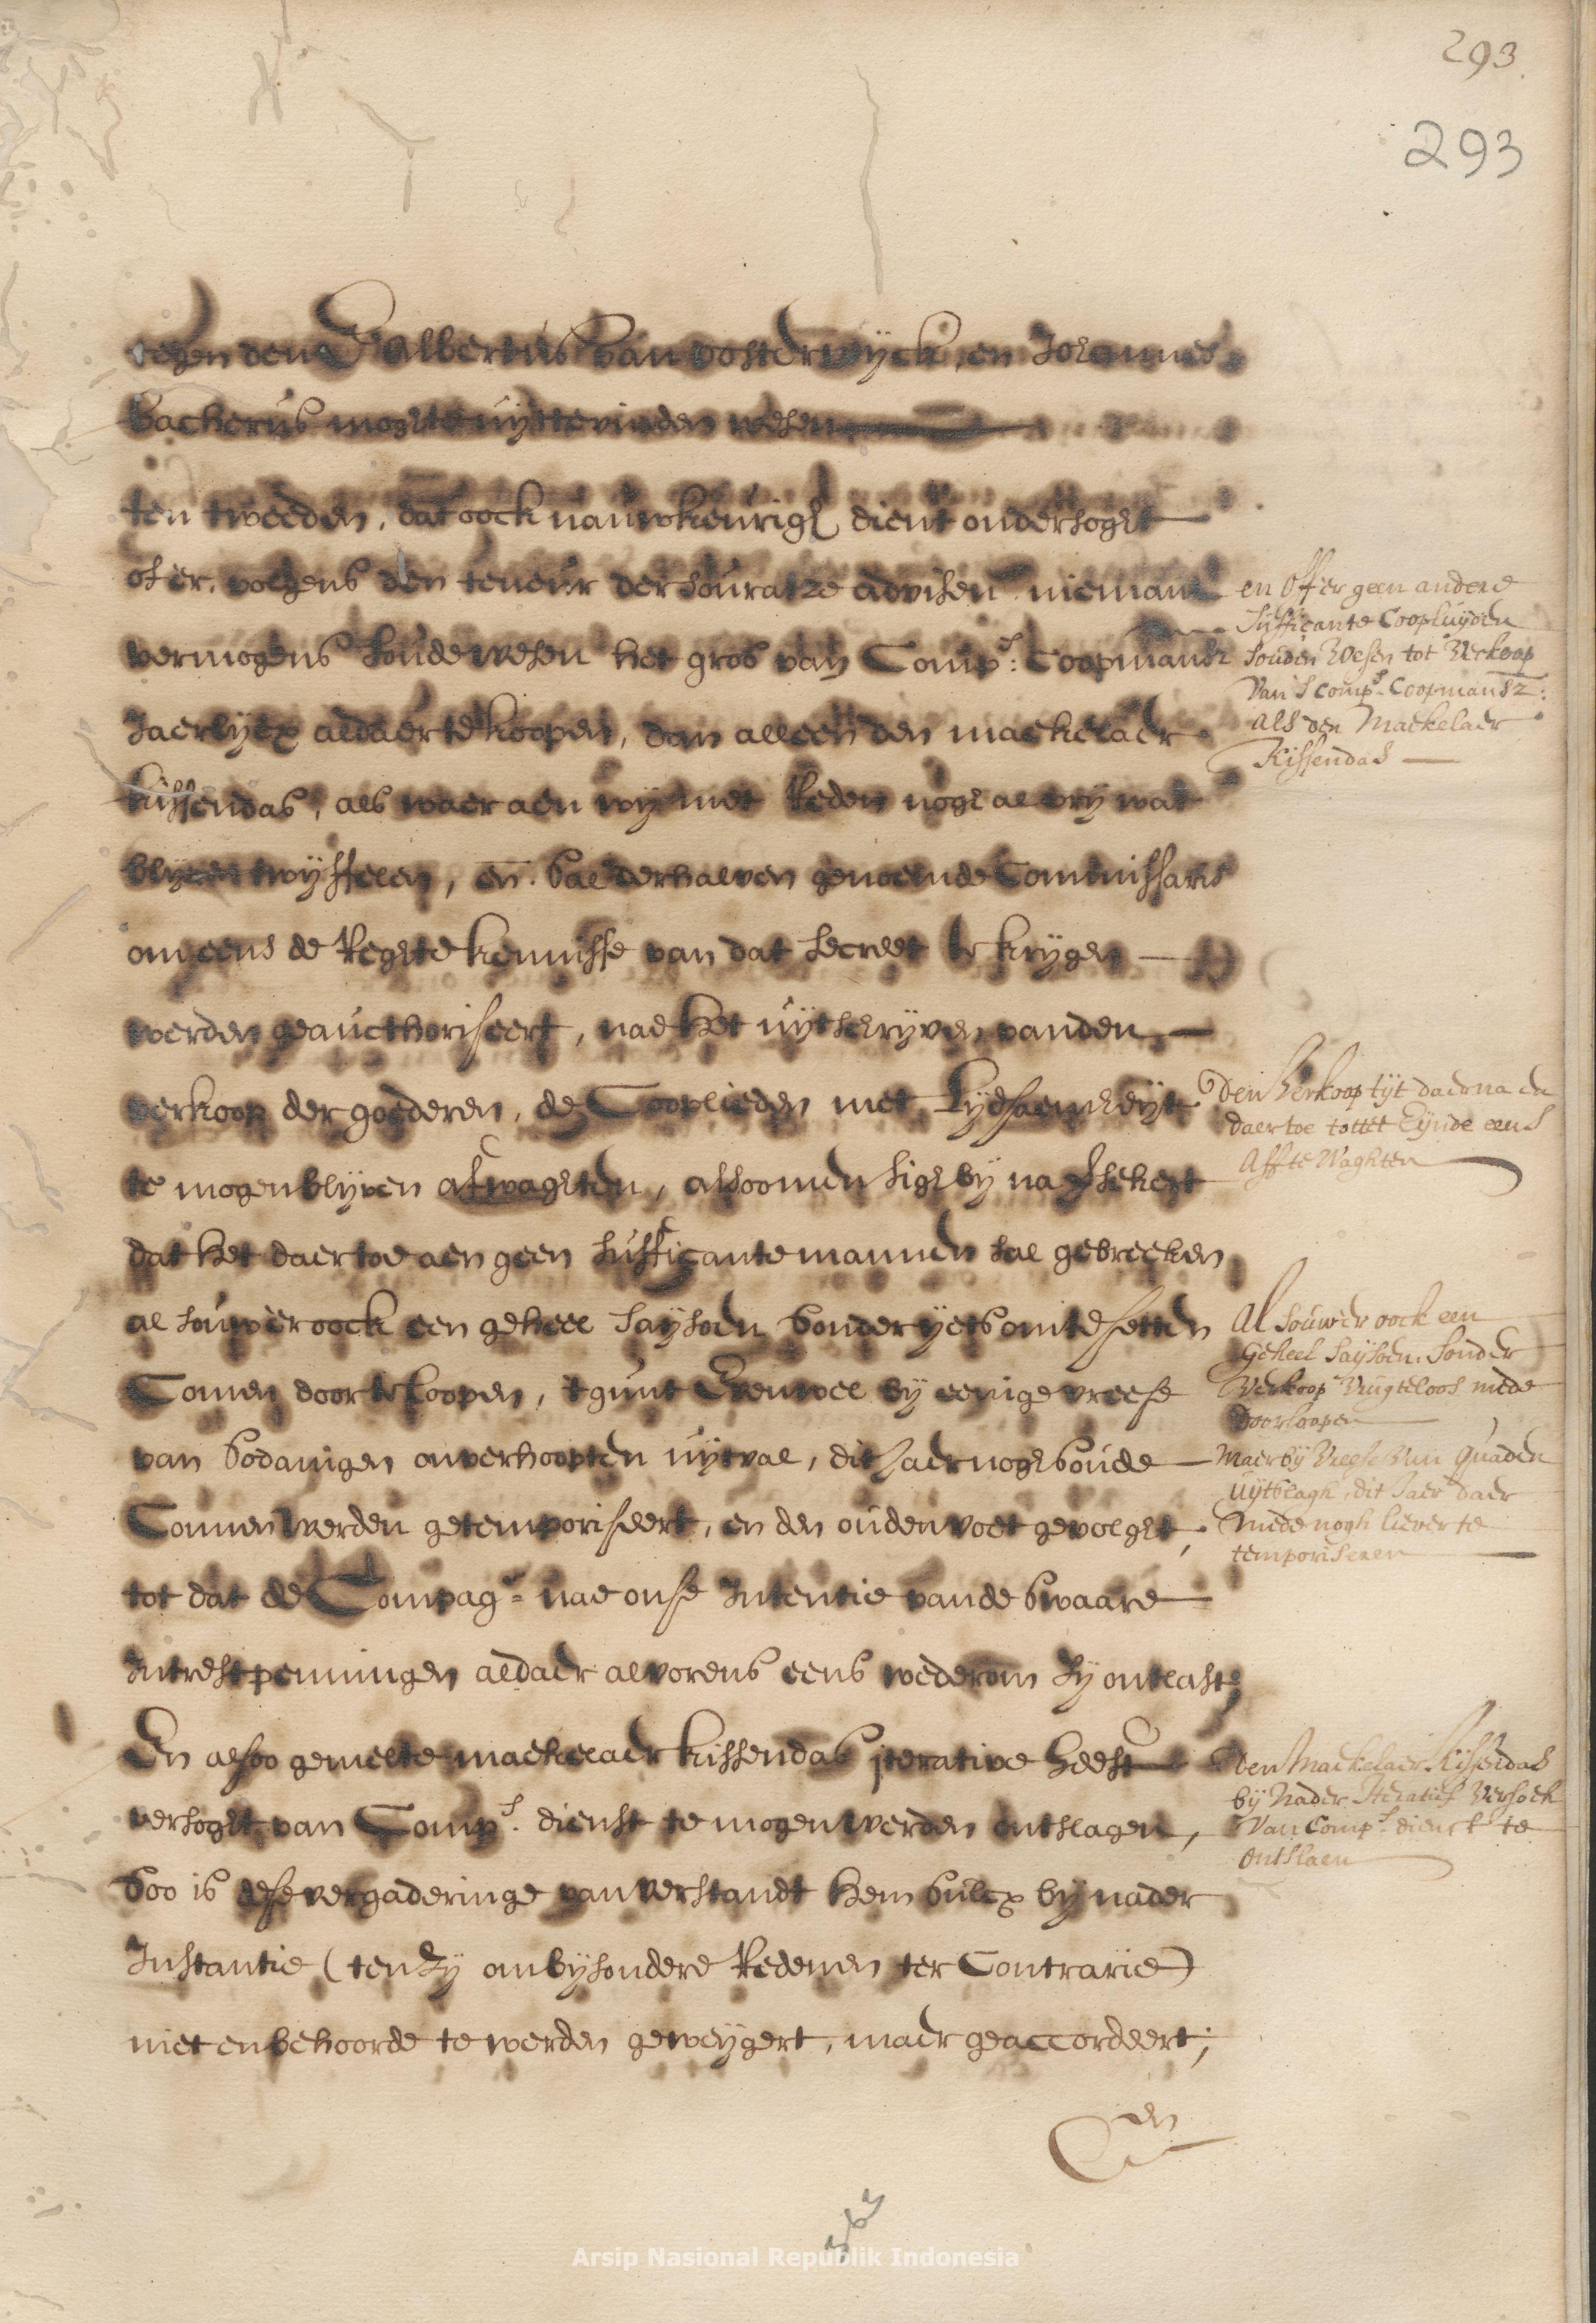 293
293
tegen den E Albertus van oosterwyck, en Johannes
Bacherus moghte uyttevinden wesen
ten tweeden, dat ook nauwkeurigh dient ondersoght
of er, volgens den teneur der souratze advisen niemant
vermogens soude wesen het gros van Comp:s Coopmansz
Jaerlycx aldaer te koopen, dan alleen den maekelaer
kissendas, als waer aen wy met Reden nogh al vry wat
blyven twyffelen, en sal derhalven genoemde Commissaris
om eens de Reghte kennisse van dat secreet te krygen
werden geaucthoriseert, nae het uytschryven vanden
verkoop der goederen, de Cooplieden met lydsaemheyt
te mogen blyven afwaghten, alsoomen sigh by na
dat het daer toe aen geen sufficante mannen sal gebreeken
al souwer oock een geheel Saysoen sonder yets om te setten
Comen door te loopen, 't gunt Evenwel by eenige vreese
van sodanigen onverhoopten uytval, dit Jaer nogh soude
Connen werden getemporiseert, en den ouden voet gevolght,
tot dat de Compag:e nae onse Intentie vande swaare
Intrest penningen aldaer alvorens eens wederom zy ontlast;
En alsoo gemelte maekelaer kissendas iterative heeft
versoght van Comp:s dienst te mogen werden ontslagen,
soo is dese vergaderinge van verstandt hem sulcx by nader
Instantie (ten zy om bysondere Redenen ter Contrarie)
niet en behoorde te werden geweygert, maer geaccordeert;
En
en off er geen andere
Sufficante Coopluyden
souden Wesen tot Verkoop
Van 's Comp:s Coopmansz:
als den Maekelaer
Kissendas
Den Verkoop tyt daerna en
daertoe tottet Eynde eens
Aff te Waghten
Al souwer oock een
Geheel Saysoen. Sonder
Verkoop Vrugteloos mede
Doorloopen
Maer by Vreese Van quaden
Uytslagh, dit Jaer daer
mede nogh liever te
temporiseren
Den Maekelaer Kissendas
by Nader Iteratief Versoek
Van Comp:s dienst te
Ontslaen
Arsip Nasional Republik Indonesia